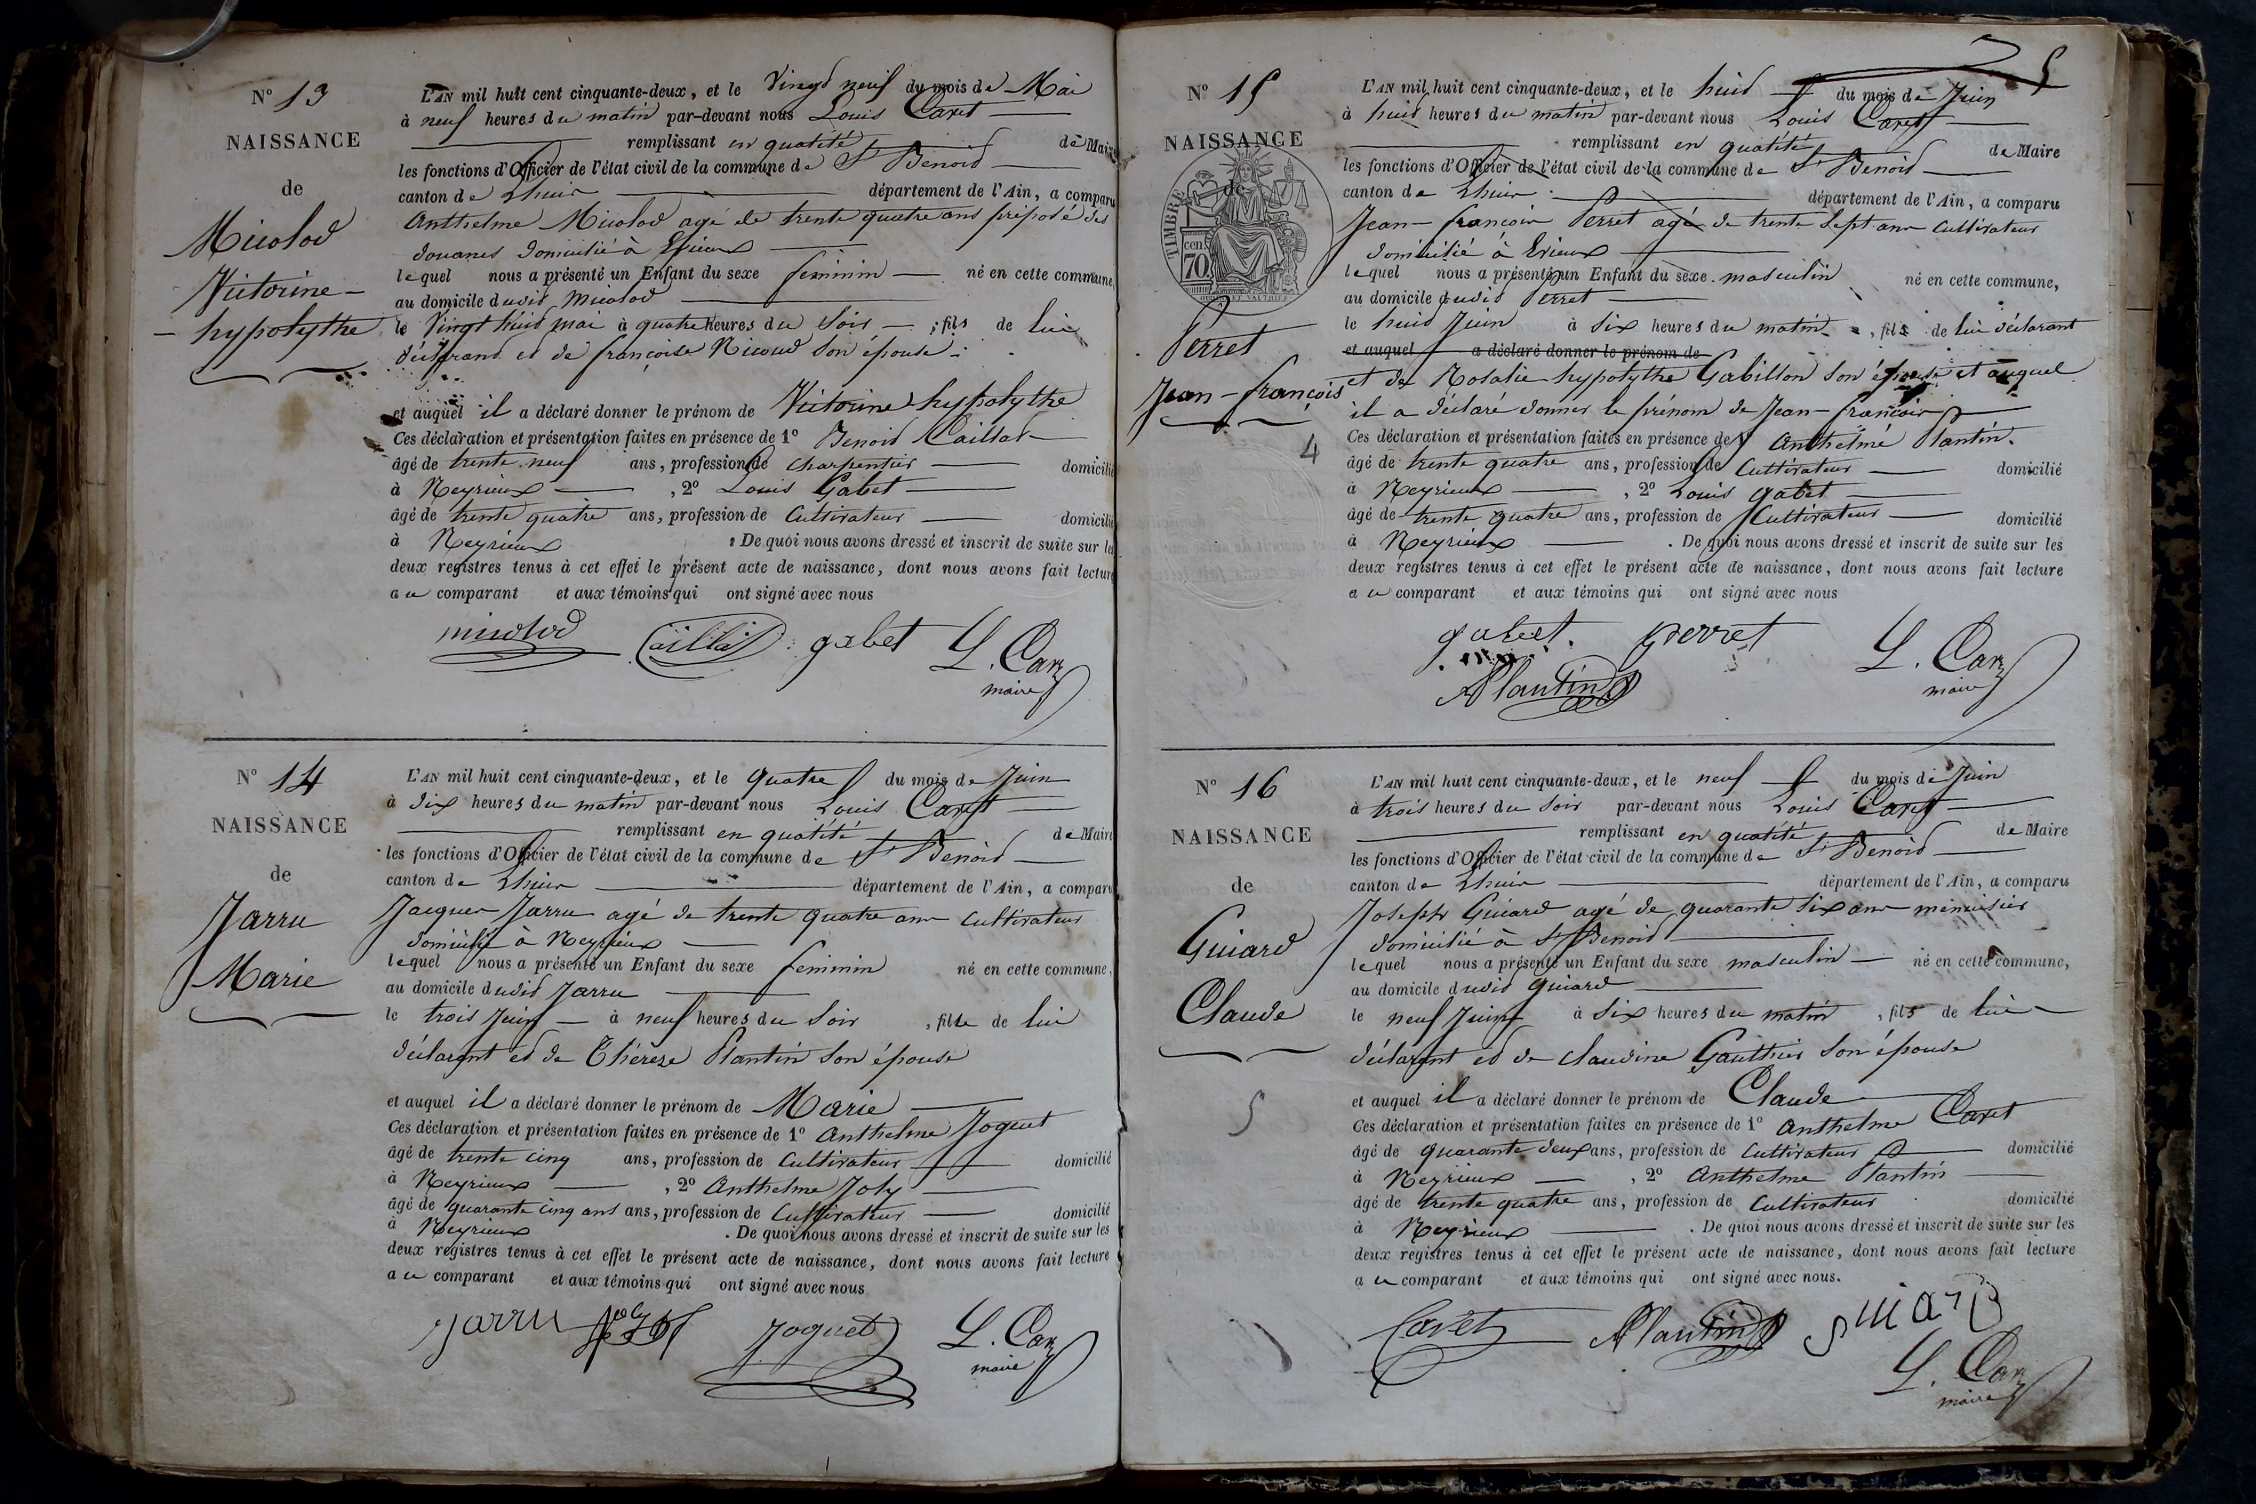 N° 13
NAISSANCE
de
Micolod
Victorine-
- hypolythe
L'AN mil huit cent cinquante-deux, et le Vingt neuf du mois de Mai
à neuf heures du matin par-devant nous Louis Caret
remplissant en qualité de Maire
les fonctions d'Officier de l'état civil de la commune de St Benoid
canton de Lhuis département de l'Ain, a comparu
Anthelme Micolod agé de trente quatre ans préposé des
douanes domicilié à
lequel nous a présenté un Enfant du sexe feminin né en cette commune,
au domicile dudid Micolod
le Vingt huid mai à quatre heures du soir ; fils de lui
déclarand et de françoise Nicoud son épouse
et auquel il a déclaré donner le prénom de Victorine hypolythe
Ces déclaration et présentation faites en présence de 1° Benoid Caillat
âgé de trente neuf ans, profession de charpentier domicilié
à Neyrieux , 2° Louis Gabet
âgé de trente quatre ans, profession de Cultivateur domicilié
à Neyrieux . De quoi nous avons dressé et inscrit de suite sur les
deux registres tenus à cet effet le présent acte de naissance, dont nous avons fait lecture
au comparant et aux témoins qui ont signé avec nous
micolod Caillat gabet L. Car
maire
N° 14
NAISSANCE
de
Jarru
Marie
L'AN mil huit cent cinquante-deux, et le quatre du mois de Juin
à dix heures du matin par-devant nous Louis Caret
remplissant en qualité de Maire
les fonctions d'Officier de l'état civil de la commune de St Benoid
canton de Lhuis département de l'Ain, a comparu
Jacques Jarru agé de trente quatre ans cultivateur
domicilié à Neyrieux
lequel nous a présenté un Enfant du sexe feminin né en cette commune,
au domicile dudid Jarru
le trois Juin à neuf heures du soir , fille de lui
déclarant et de Thérèze Plantin son épouse
et auquel il a déclaré donner le prénom de Marie
Ces déclaration et présentation faites en présence de 1° Anthelme Joguet
âgé de trente cinq ans, profession de Cultivateur domicilié
à Neyrieux , 2° Anthelme Joly
âgé de quarante cinq ans ans, profession de Cultivateur domicilié
à Neyrieux . De quoi nous avons dressé et inscrit de suite sur les
deux registres tenus à cet effet le présent acte de naissance, dont nous avons fait lecture
au comparant et aux témoins qui ont signé avec nous
Jarru Joly Joguet L. Car
maire
5
N° 15
NAISSANCE
de
TIMBRE
cen
70
Perret
Jean-françois
4
L'AN mil huit cent cinquante-deux, et le huid du mois de Juin
à huid heures du matin par-devant nous Louis Caret
remplissant en qualité de Maire
les fonctions d'Officier de l'état civil de la commune de St Benoid
canton de Lhuis département de l'Ain, a comparu
Jean-françois Perret agé de trente sept ans cultivateur
domicilié à
lequel nous a présenté un Enfant du sexe masculin né en cette commune,
au domicile dudid Perret
le huid Juin à six heures du matin , fils de lui déclarant
et auquel a déclaré donner le prénom de
et de Rosalie hypolythe Gabillon son épouse et auquel
il a déclaré donner le prénom de Jean-françois
Ces déclaration et présentation faites en présence de 1° Anthelme Plantin
âgé de trente quatre ans, profession de Cultivateur domicilié
à Neyrieux , 2° Louis gabet
âgé de trente quatre ans, profession de Cultivateur domicilié
à Neyrieux . De quoi nous avons dressé et inscrit de suite sur les
deux registres tenus à cet effet le présent acte de naissance, dont nous avons fait lecture
au comparant et aux témoins qui ont signé avec nous
gabet. perret L. Car
APlantin maire
N° 16
NAISSANCE
de
Guiard
Claude
5
L'AN mil huit cent cinquante-deux, et le neuf du mois de Juin
à trois heures du soir par-devant nous Louis Caret
remplissant en qualité de Maire
les fonctions d'Officier de l'état civil de la commune de St Benoid
canton de Lhuis département de l'Ain, a comparu
Joseph Guiard agé de quarante six ans menuisier
domicilié à St Benoid
lequel nous a présenté un Enfant du sexe masculin né en cette commune,
au domicile dudid Guiard
le neuf Juin à six heures du matin , fils de lui
déclarant et de claudine Gauthier son épouse
et auquel il a déclaré donner le prénom de Claude
Ces déclaration et présentation faites en présence de 1° Anthelme Caret
âgé de quarante deux ans, profession de Cultivateur domicilié
à Neyrieux , 2° Anthelme Plantin
âgé de trente quatre ans, profession de Cultivateur domicilié
à Neyrieux . De quoi nous avons dressé et inscrit de suite sur les
deux registres tenus à cet effet le présent acte de naissance, dont nous avons fait lecture
au comparant et aux témoins qui ont signé avec nous.
Caret APlantin guiard
L. Car
maire